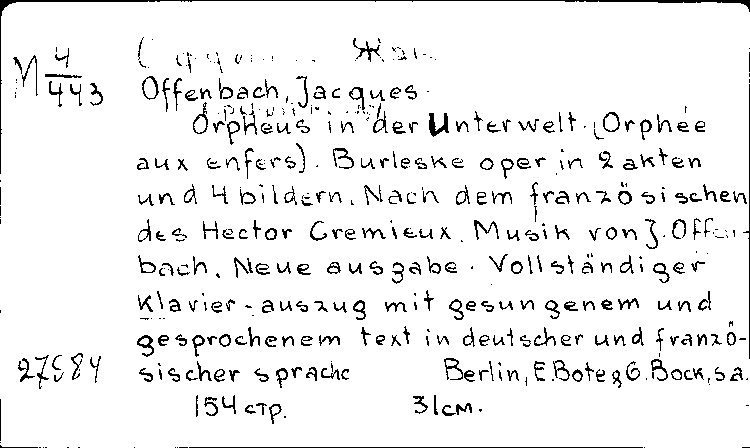 M 4/443
Offenbach, Jacques.
Orpheus in der Unterwelt. (Orphée
aux enfers). Burleske oper in 2 akten
und 4 bildern. Nach dem französischen
des Hector Cremieux. Musik von J. Offen-
bach. Neue ausgabe. Vollständiger
Klavier-auszug mit gesungenem und
gesprochenem text in deutscher und franzö-
sischer sprache Berlin, E. Bote & G. Bock, s.a.
154 стр. 31 см.